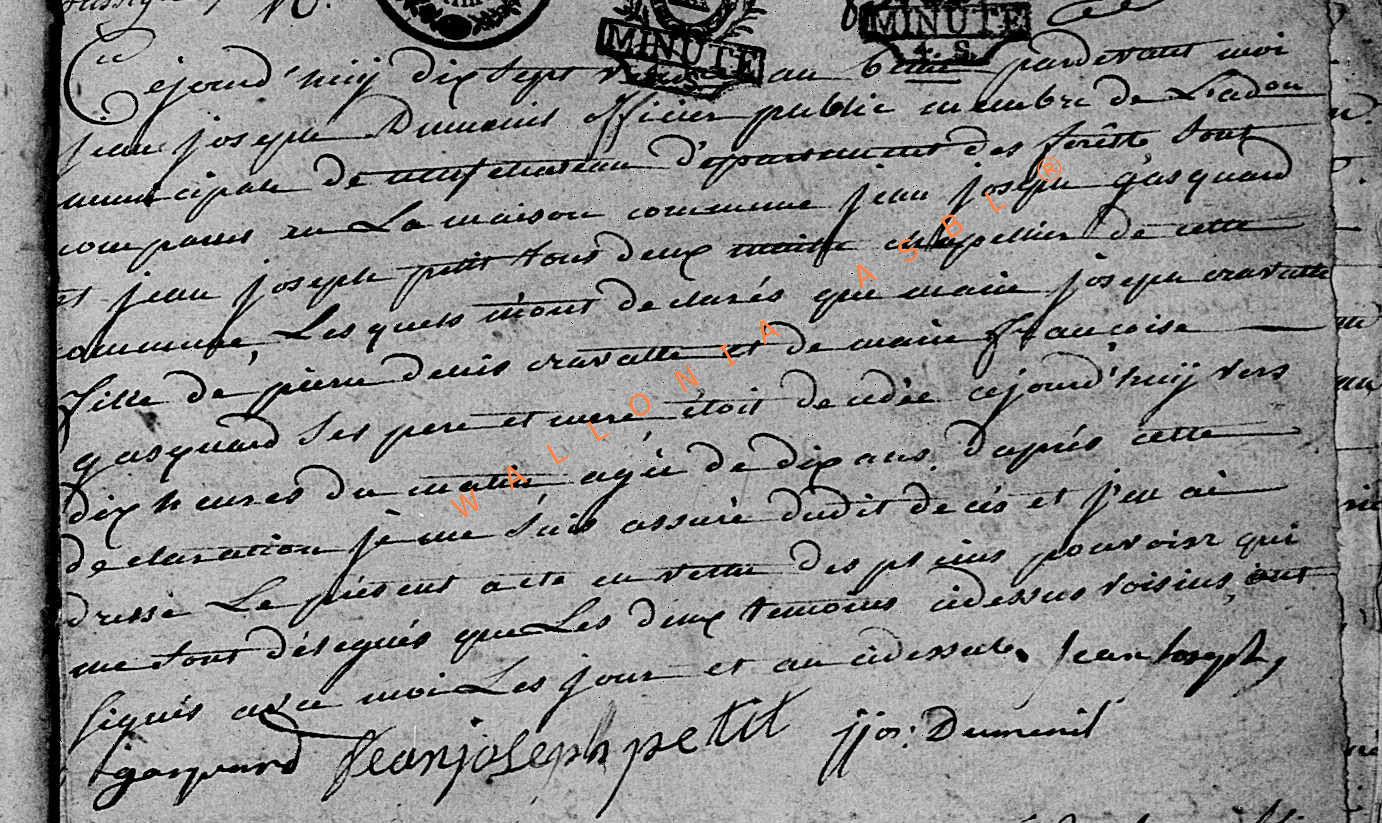 MINUTE
MINUTE
4. S.
Cejourd'huij dix Sept au 6eme pardevant moi
jean joseph Dumenil officier public membre de L'adon
municipale de neufchateau d'epartement des forêts Sont
comparus en La maison commune jean joseph gasquard
et jean joseph petit tous deux chapellier de cette
commune, Lesquels m'ont declarés que marie joseph cravatte
fille de pierre denis cravatte et de marie francoise
gasquard Ses pere et mere étoit decedée cejourd'huij vers
dix heures du matin agée de dix ans. d'aprés cette
declaration je me Suis assuré dudit decés et j'en ai
dressé Le présent acte en vertu des pleins pouvoirs qui
me Sont délegués que Les deux temoins cidessus voisins, ont
Signés avec moi Les jour et an cidessus. Jean Joseph
gasquard Jean joseph petit jjos: Dumenil
WALLONIA ASBL ®